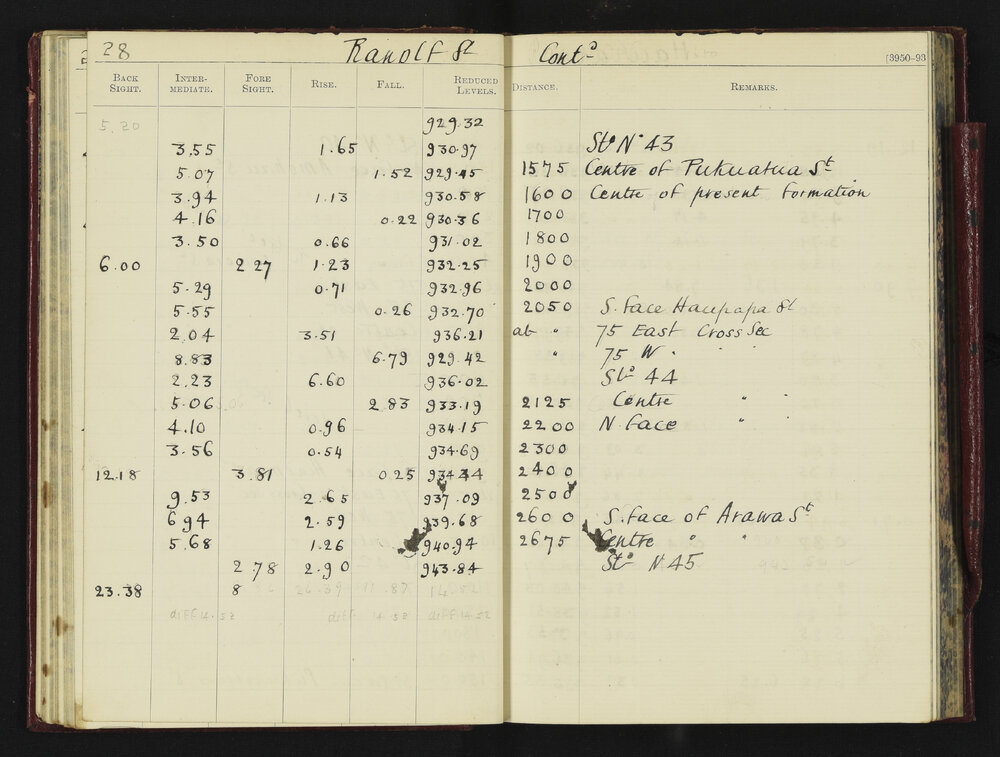 28 Ranolf St Contd (3950-93
BACK SIGHT. INTER-MEDIATE. FORE SIGHT. RISE. FALL. REDUCED LEVELS. DISTANCE. REMARKS.
5.20 929.32
3.55 1.65 930.97 Stn No 43
5.07 1.52 929.45 1575 Centre of Pukuatua St
3.94 1.13 930.58 1600 Centre of present formation
4.16 0.22 930.36 1700
3.50 0.66 931.02 1800
6.00 2 27 1.23 932.25 1900
5.29 0.71 932.96 2000
5.55 0.26 932.70 2050 S. Face Haupapa St
2.04 3.51 936.21 at " 75 East Cross Sec
8.83 6.79 929.42 " 75 W "
2.23 6.60 936.02 Stn 44
5.06 2 83 933.19 2125 Centre " "
4.10 0.96 934.15 2200 N. Face "
3.56 0.54 934.69 2300
12.18 3.81 0.25 934.44 2400
9.53 2.65 937.09 2500
6 94 2.59 939.68 2600 S. Face of Arawa St
5.68 1.26 940.94 2675 Centre " "
2 78 2.90 943.84 Stn N 45
23.38 8
diff 14.52 diff 14.52 diff 14.52